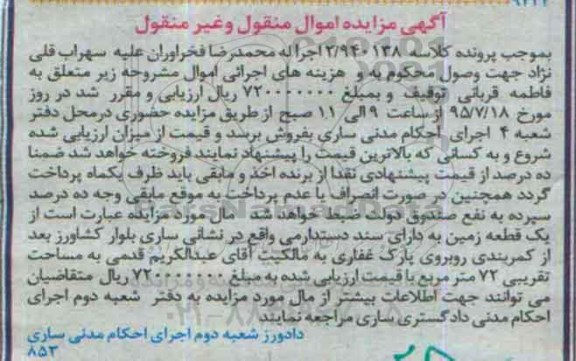 آگهی مزایده اموال منقول وغیر منقول
بموجب پرونده کلاسه ۲/۹۴۰۱۳۸ اجرا له محمدرضا فخراوران علیه سهراب قلی
نژاد جهت وصول محکوم به و هزینه های اجرائی اموال مشروحه زیر متعلق به
فاطمه قربانی توقیف و بمبلغ ۷۲۰۰۰۰۰۰۰ ریال ارزیابی و مقرر شد در روز
مورخ ۹۵/۷/۱۸ از ساعت ۹ الی ۱۱ صبح از طریق مزایده حضوری درمحل دفتر
شعبه ۴ اجرای احکام مدنی ساری بفروش برسد و قیمت از میزان ارزیابی شده
شروع و به کسانی که بالاترین قیمت را پیشنهاد نمایند فروخته خواهد شد ضمنا
ده درصد از قیمت پیشنهادی نقدا از برنده اخذ و مابقی باید ظرف یکماه پرداخت
گردد همچنین در صورت انصراف یا عدم پرداخت به موقع مابقی وجه ده درصد
سپرده به نفع صندوق دولت ضبط خواهد شد مال مورد مزایده عبارت است از
یک قطعه زمین به دارای سند دستدارمی واقع در نشانی ساری بلوار کشاورز بعد
از کمربندی روبروی پارک غفاری به مالکیت آقای عبدالکریم قدمی به مساحت
تقریبی ۷۲ متر مربع با قیمت ارزیابی شده به مبلغ ۷۲۰۰۰۰۰۰۰ ریال متقاضیان
می توانند جهت اطلاعات بیشتر از مال مورد مزایده به دفتر شعبه دوم اجرای
احکام مدنی دادگستری ساری مراجعه نمایند
دادورز شعبه دوم اجرای احکام مدنی ساری
۸۵۳